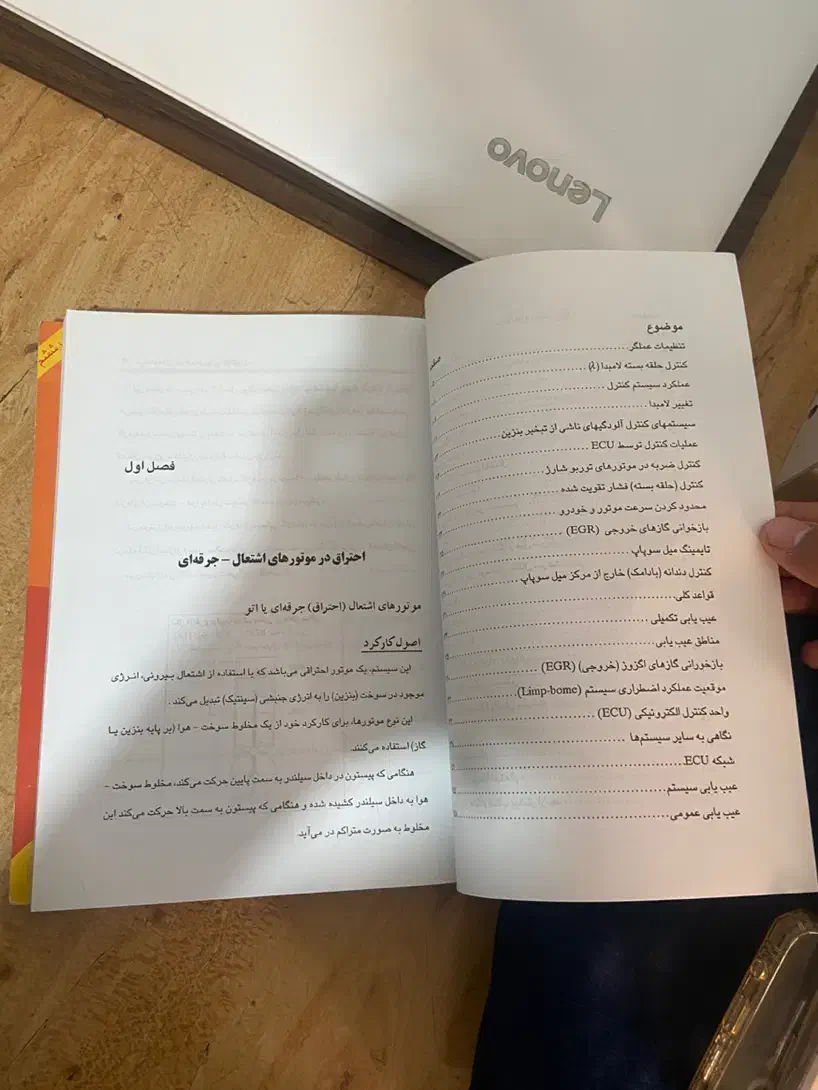 Lenovo
موضوع
تنظیمات عملگر
کنترل حلقه بسته لامبدا (λ)
عملکرد سیستم کنترل
تغییر لامبدا
سیستمهای کنترل آلودگیهای ناشی از تبخیر بنزین
عملیات کنترل توسط ECU
کنترل ضربه در موتورهای توربو شارژ
کنترل (حلقه بسته) فشار تقویت شده
محدود کردن سرعت موتور و خودرو
بازخوانی گازهای خروجی (EGR)
تایمینگ میل سوپاپ
کنترل دندانه (بادامک) خارج از مرکز میل سوپاپ
قواعد کلی
عیب یابی تکمیلی
مناطق عیب یابی
بازخورانی گازهای اگزوز (خروجی) (EGR)
موقعیت عملکرد اضطراری سیستم (Limp-bome)
واحد کنترل الکترونیکی (ECU)
نگاهی به سایر سیستم‌ها
شبکه ECU
عیب یابی سیستم
عیب یابی عمومی
فصل اول
احتراق در موتورهای اشتعال – جرقه‌ای
موتورهای اشتعال (احتراق) جرقه‌ای یا اتو
اصول کارکرد
این سیستم، یک موتور احتراقی می‌باشد که با استفاده از اشتعال بیرونی، انرژی
موجود در سوخت (بنزین) را به انرژی جنبشی (سینتیک) تبدیل می‌کند.
این نوع موتورها، برای کارکرد خود از یک مخلوط سوخت – هوا (بر پایه بنزین یا
گاز) استفاده می‌کنند.
هنگامی که پیستون در داخل سیلندر به سمت پایین حرکت می‌کند، مخلوط سوخت –
هوا به داخل سیلندر کشیده شده و هنگامی که پیستون به سمت بالا حرکت می‌کند این
مخلوط به صورت متراکم در می‌آید.